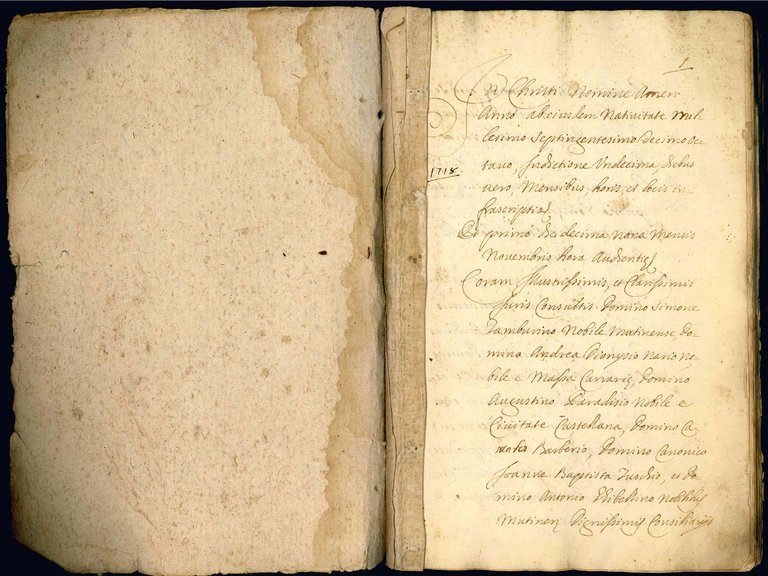 1
In Christi Nomine Amen
Anno ab eiusdem Nativitate Mil-
lesimo Septingentesimo Decimo Oc-
tavo, Indictione Undecima, diebus
1718
vero, Mensibus, horis, et locis in-
frascriptis
Et primo die decima nona Mensis
Novembris hora Audientię
Coram Illustrissimis, et Clarissimis
Juris Consultis Domino Simone
Tamburino Nobile Mutinense, Do-
mino Andrea Dionysio Nario No-
bile e Massa Carrarię, Domino
Augustino Paradisio Nobile e
Civitate Castellana, Domino Ca-
Barberio, Domino Canonico
Joanne Baptista Tuschio, et Do-
mino Antonio Nobilibus
Mutinen Dignissimis Consiliarijs